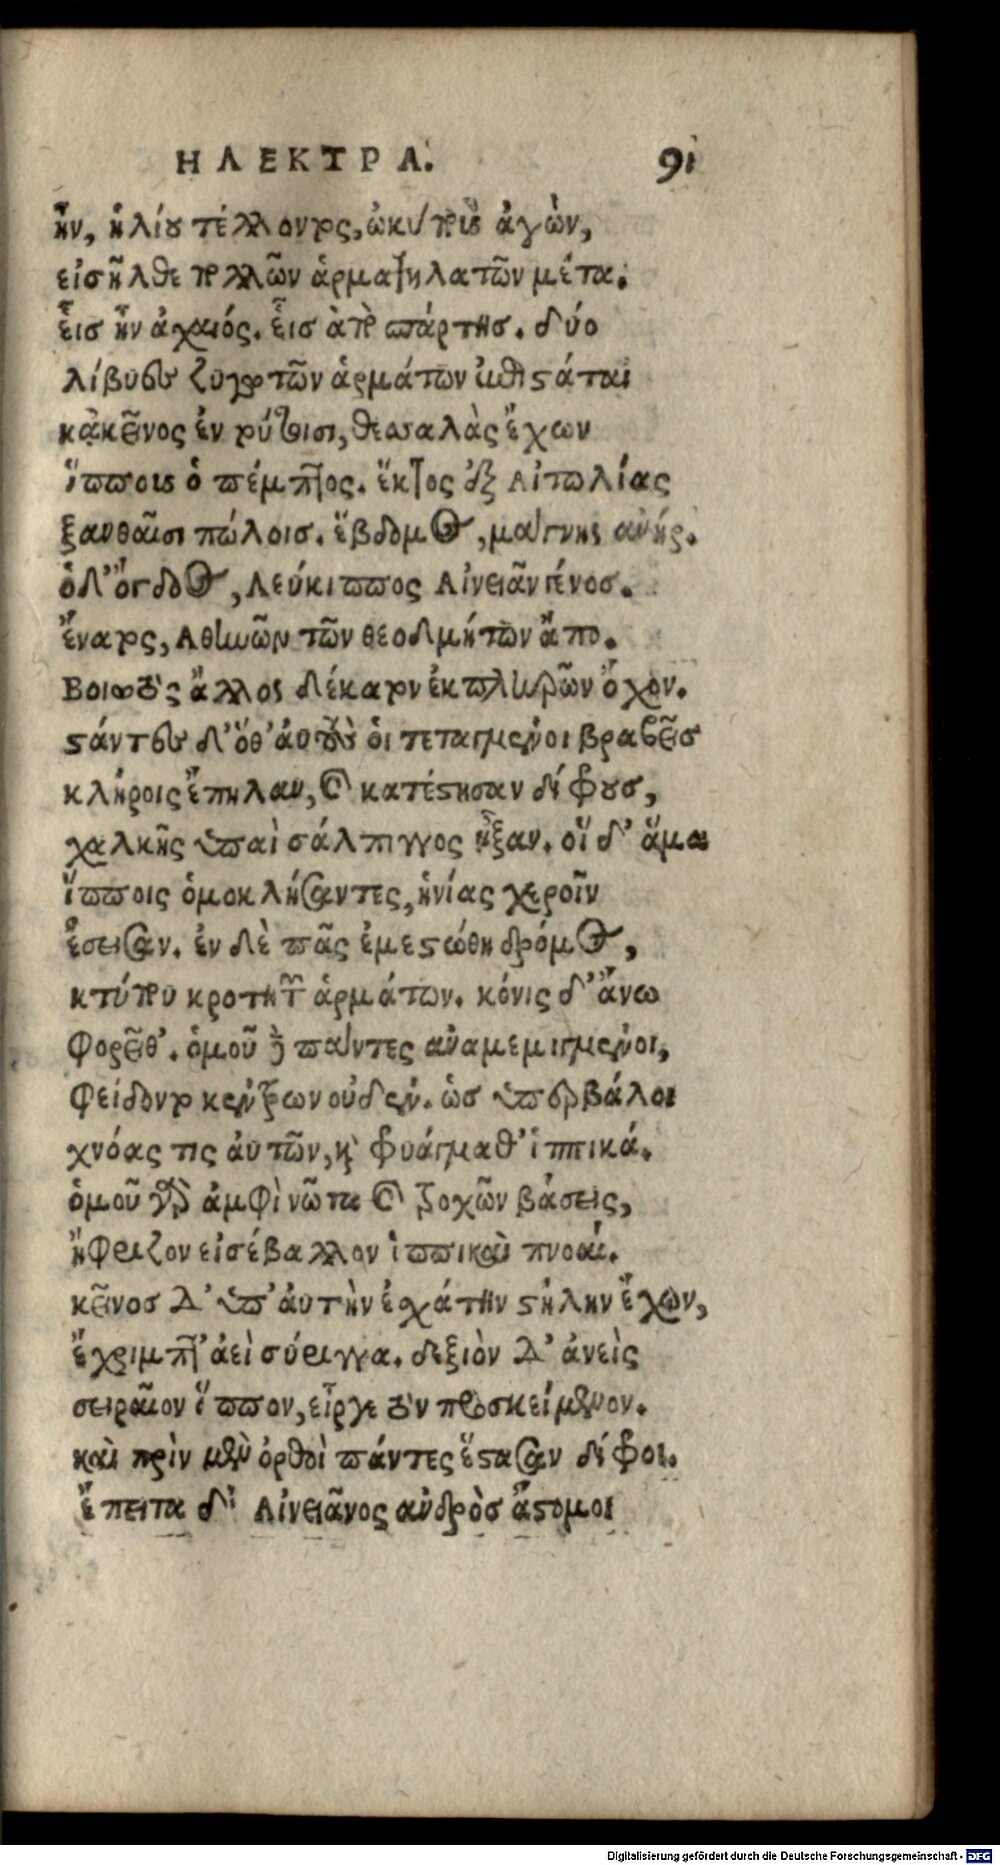 ΗΛΕΚΤΡΑ. 91
ἦν, ἡλίου τέλλοντος, ὠκύπους ἀγὼν,
εἰσῆλθε πολλῶν ἁρματηλατῶν μέτα.
εἷς ἦν ἀχαιός. εἷς ἀπὸ σπάρτης. δύο
λίβυες ζυγωτῶν ἁρμάτων ἐπιστάται
κἀκεῖνος ἐν τούτοισι, θεσσαλὰς ἔχων
ἵππους ὁ πέμπτος. ἕκτος ἐξ Αἰτωλίας
ξανθαῖσι πώλοις. ἕβδομος, μάγνης ἀνήρ.
ὁ δ' ὄγδοος, λεύκιππος Αἰνειὰν γένος.
ἔνατος, Αθηνῶν τῶν θεοδμήτων ἄπο.
Βοιωτὸς ἄλλος δέκατον ἐκπληρῶν ὄχον.
στάντες δ' ὅθ' αὐτοὺς οἱ τεταγμένοι βραβεῖς
κλήροις ἔπηλαν, καὶ κατέστησαν δίφρους,
χαλκῆς ὑπαὶ σάλπιγγος ᾖξαν. οἵ δ' ἅμα
ἵπποις ὁμοκλήσαντες, ἡνίας χεροῖν
ἔσεισαν. ἐν δὲ πᾶς ἐμεστώθη δρόμος,
κτύπου κροτητῶν ἁρμάτων. κόνις δ' ἄνω
φορεῖθ'. ὁμοῦ δὲ πάντες ἀναμεμιγμένοι,
φείδοντο κέντρων οὐδέν. ὡς ὑπερβάλοι
χνόας τις αὐτῶν, καὶ φρυάγμαθ' ἱππικά.
ὁμοῦ γὰρ ἀμφὶ νῶτα καὶ τροχῶν βάσεις,
ἤφριζον εἰσέβαλλον ἱππικαὶ πνοαί.
κεῖνος δ' ὑπ' αὐτὴν ἐσχάτην στήλην ἔχων,
ἔχριμπτ' ἀεὶ σύριγγα. δεξιὸν δ' ἀνεὶς
σειραῖον ἵππον, εἶργε τὸν προσκείμενον.
καὶ πρὶν μὲν ὀρθοὶ πάντες ἕστασαν δίφροι.
ἔπειτα δ' Αἰνειᾶνος ἀνδρὸς ἄστομοι
Digitalisierung gefördert durch die Deutsche Forschungsgemeinschaft - DFG